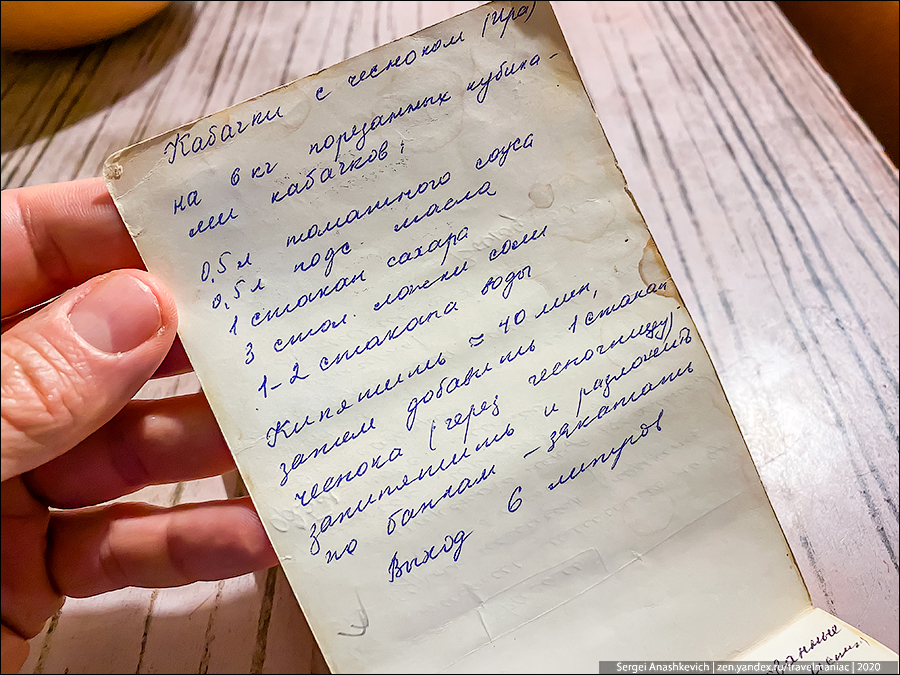 Кабачки с чесноком (Ира)
на 6 кг порезанных кубика-
ми кабачков:
0,5 л томатного соуса
0,5 л подс. масла
1 стакан сахара
3 стол. ложки соли
1-2 стакана воды
Кипятить ≈ 40 мин,
затем добавить 1 стакан
чеснока (через чесночницу).
закипятить и разложить
по банкам - закатать
Выход 6 литров
Sergei Anashkevich | zen.yandex.ru/travelmaniac | 2020